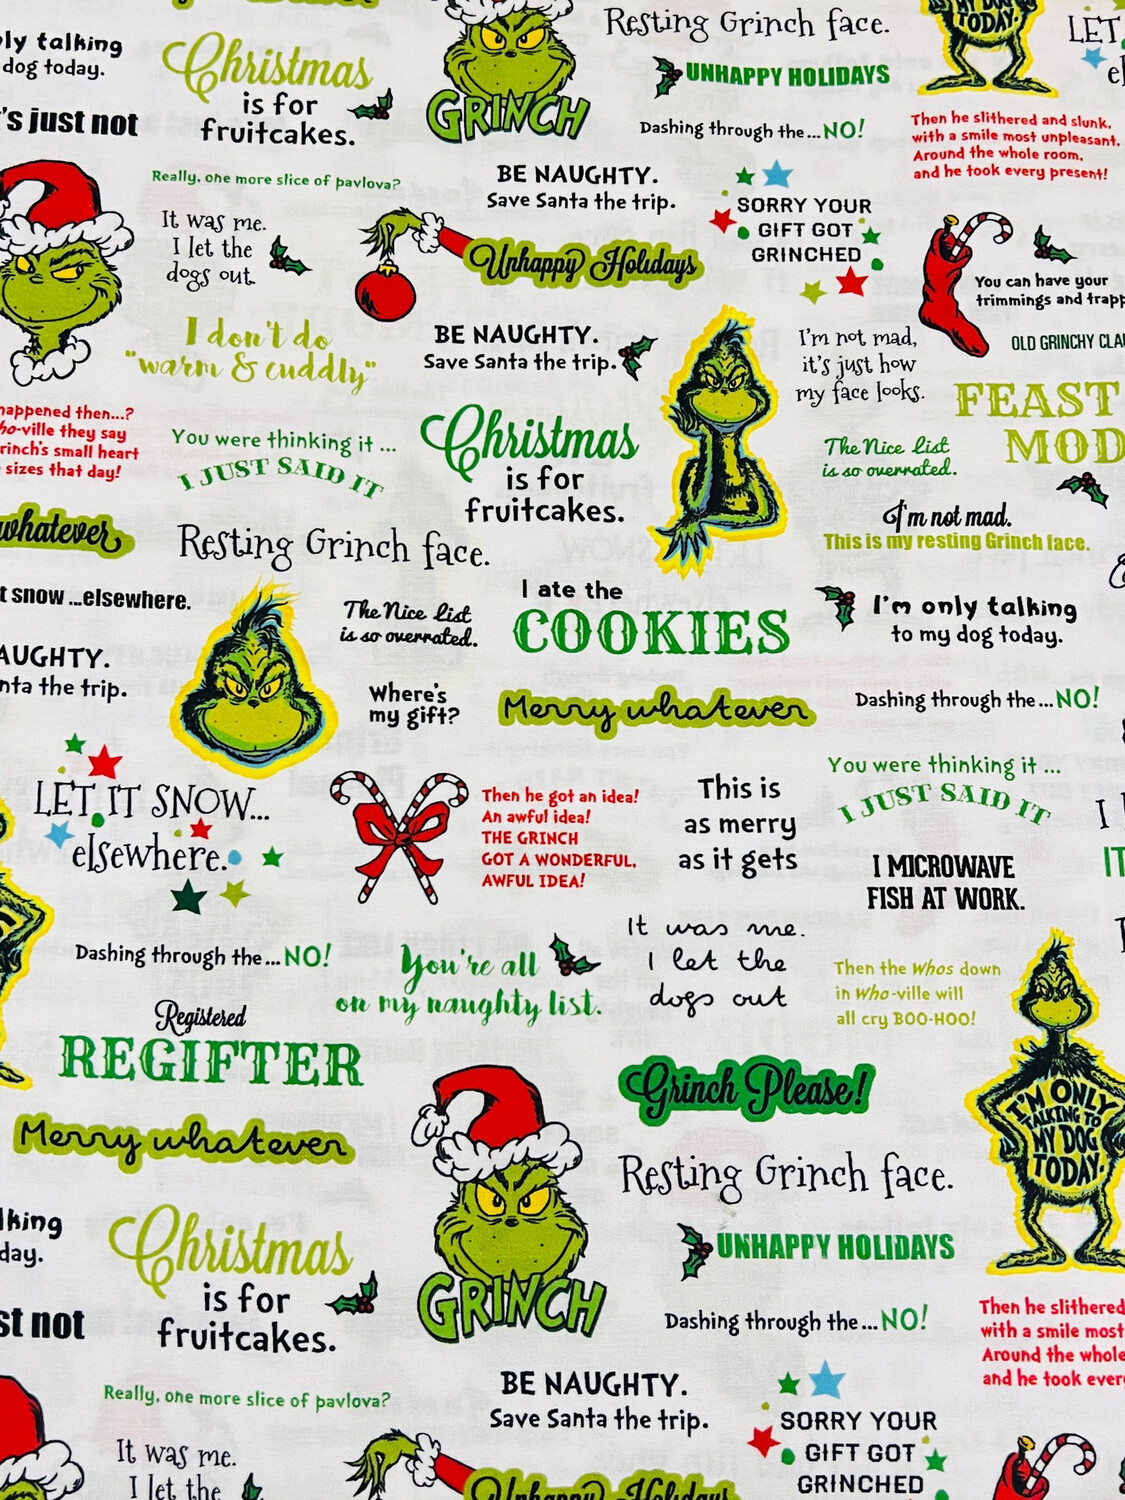 Resting Grinch face.
MY DOG
TODAY.
LET
ly talking
dog today.
Christmas
is for
fruitcakes.
GRINCH
UNHAPPY HOLIDAYS
Dashing through the... NO!
Then he slithered and slunk,
with a smile most unpleasant,
Around the whole room,
and he took every present!
's just not
Really, one more slice of pavolva?
BE NAUGHTY.
Save Santa the trip.
SORRY YOUR
GIFT GOT
GRINCHED
It was me.
I let the
dogs out.
Unhappy Holidays
You can have your
trimmings and trapp
OLD GRINCHY CLA
I don't do
"warm & cuddly"
BE NAUGHTY.
Save Santa the trip.
I'm not mad,
it's just how
my face looks.
FEAST
MOD
happened then...?
ho-ville they say
rinch's small heart
sizes that day!
You were thinking it ...
I JUST SAID IT
Christmas
is for
fruitcakes.
The Nice list
is so overrated.
whatever
Resting Grinch face.
I'm not mad.
This is my resting Grinch face.
t snow ...elsewhere.
The Nice list
is so overrated.
I ate the
COOKIES
I'm only talking
to my dog today.
AUGHTY.
nta the trip.
Where's
my gift?
Merry whatever
Dashing through the... NO!
LET IT SNOW...
elsewhere.
Then he got an idea!
An awful idea!
THE GRINCH
GOT A WONDERFUL,
AWFUL IDEA!
This is
as merry
as it gets
You were thinking it ...
I JUST SAID IT
I MICROWAVE
FISH AT WORK.
Dashing through the... NO!
You're all
on my naughty list.
It was me.
I let the
dogs out
Then the Whos down
in Who-ville will
all cry BOO-HOO!
Registered
REGIFTER
Grinch Please!
I'M ONLY
TALKING TO
MY DOG
TODAY.
Merry whatever
Resting Grinch face.
lking
day.
Christmas
is for
fruitcakes.
GRINCH
UNHAPPY HOLIDAYS
st not
Dashing through the... NO!
Then he slithered
with a smile most
Around the whole
and he took every
Really, one more slice of pavlova?
BE NAUGHTY.
Save Santa the trip.
SORRY YOUR
GIFT GOT
GRINCHED
It was me.
I let the
Unhappy Holidays